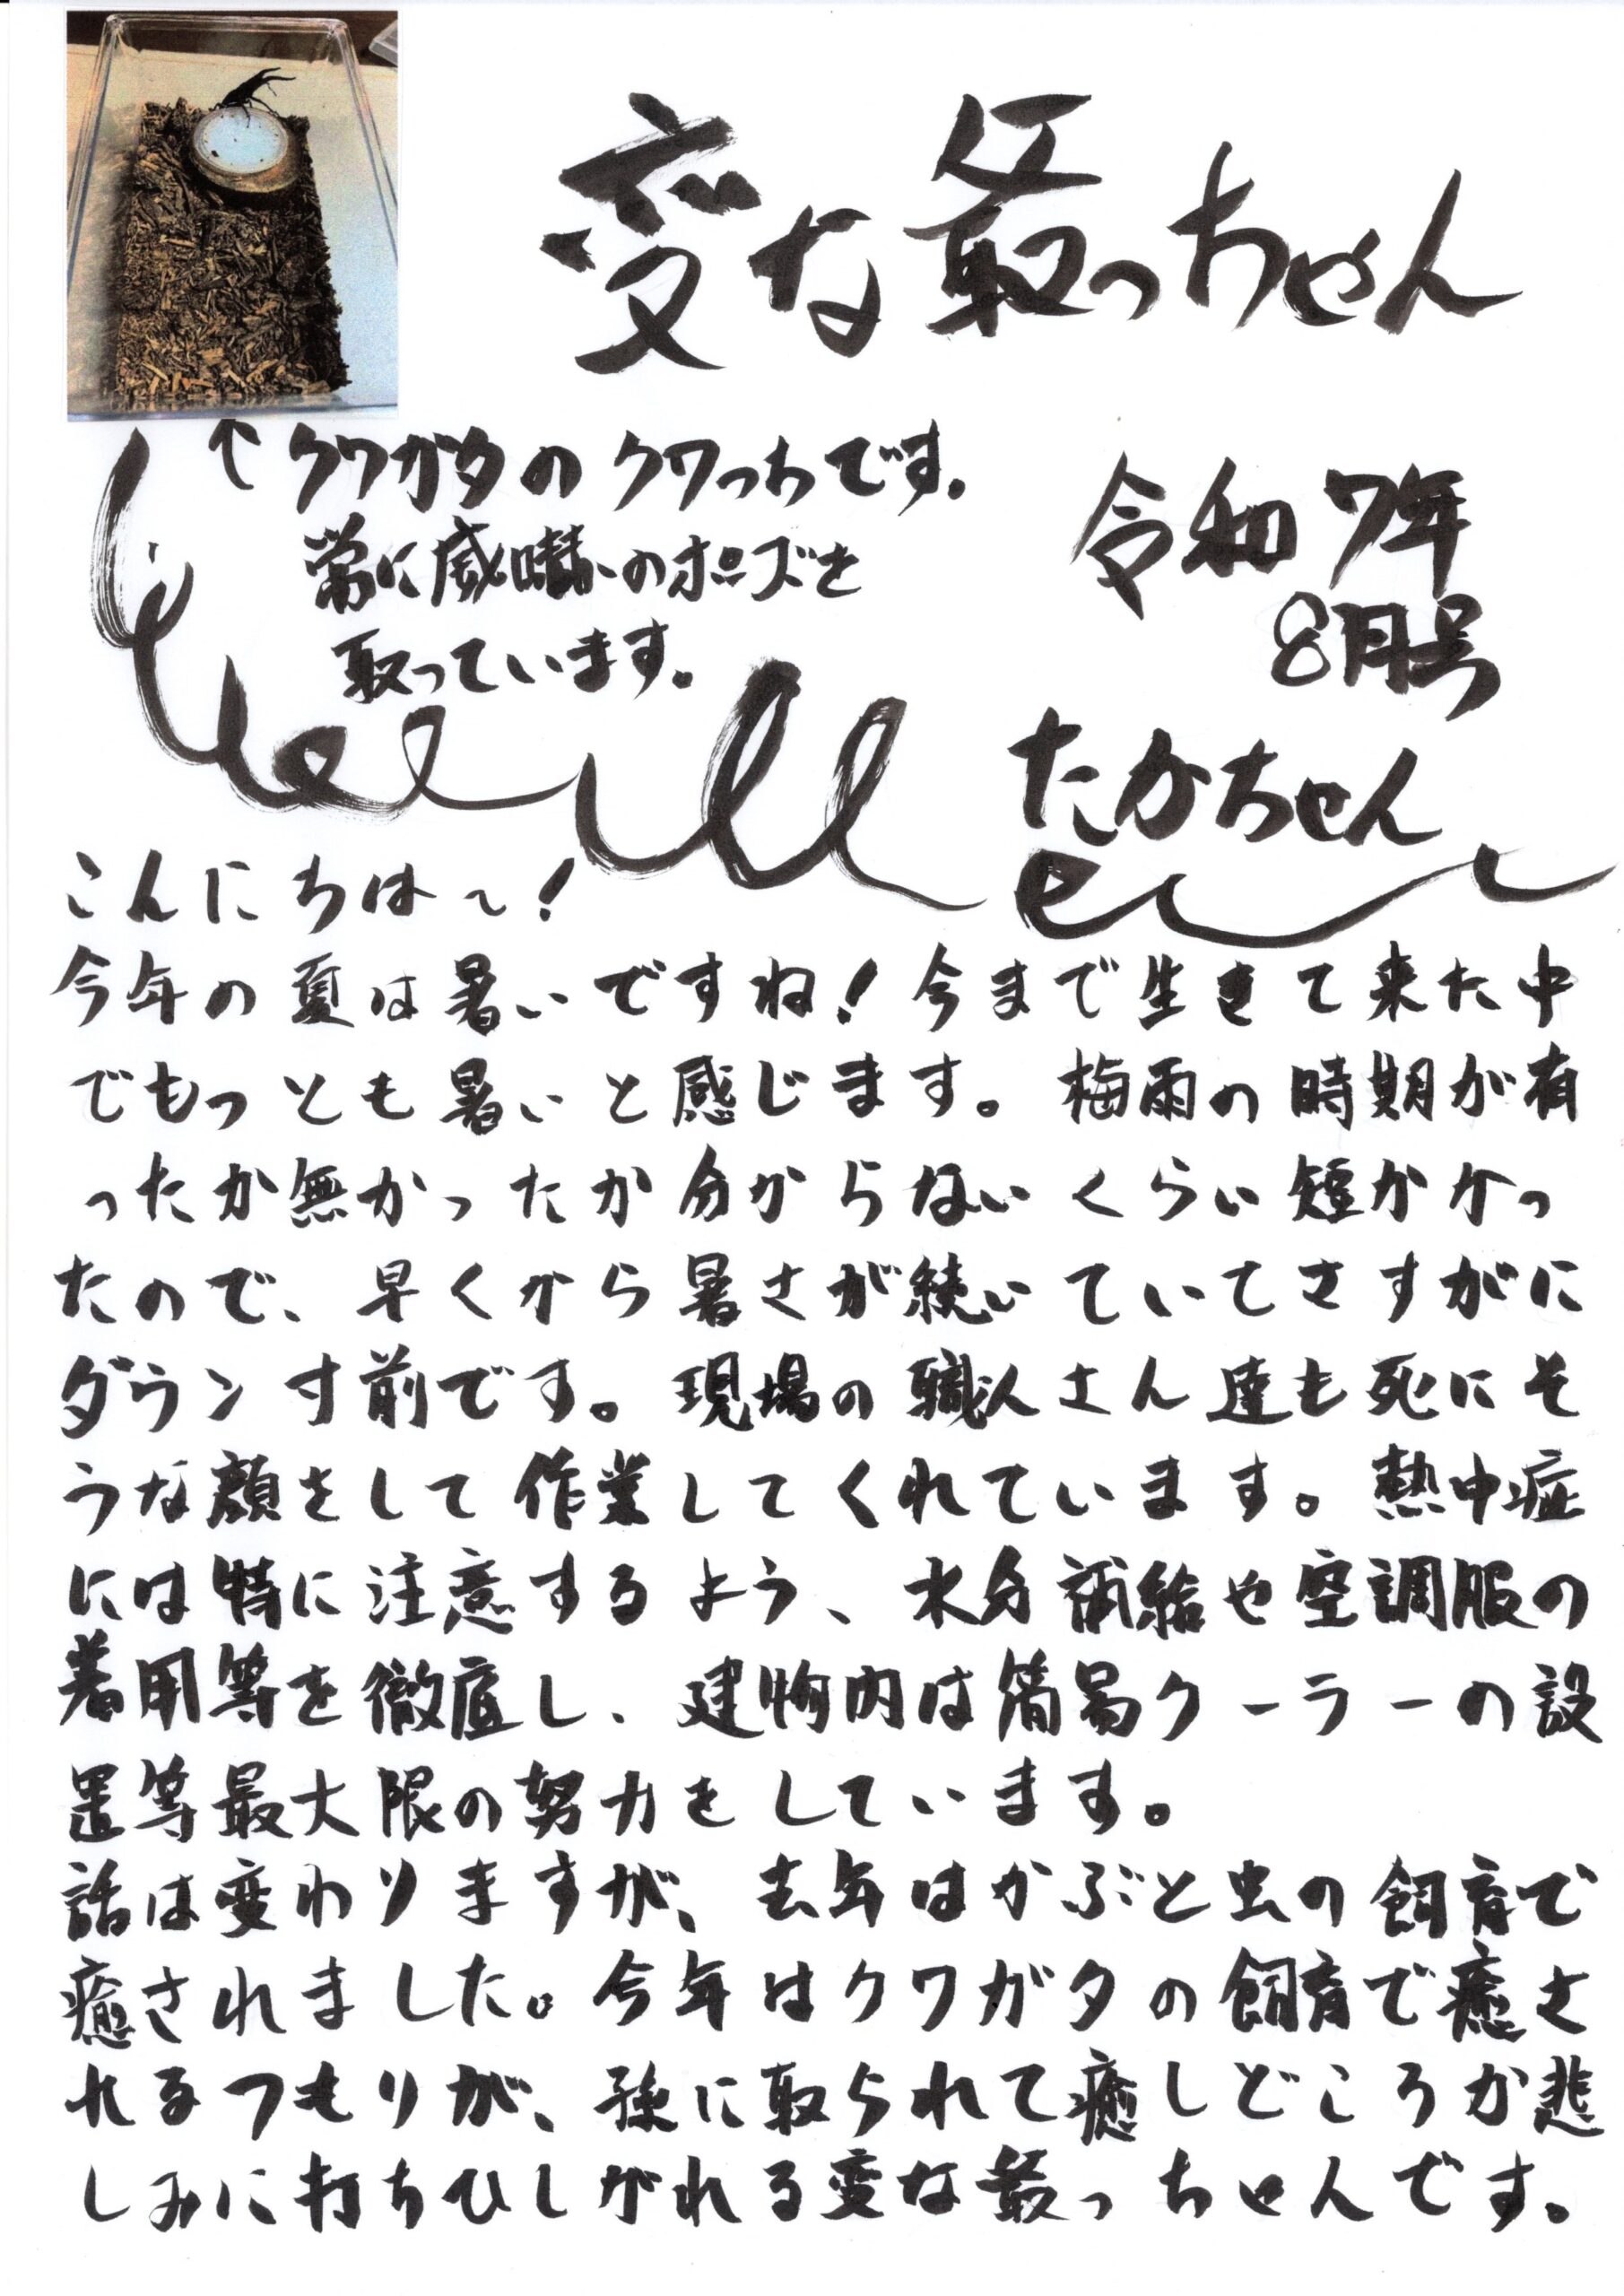 変な最っちゃん
↑クワガタのクワっちです。
常に威嚇のポーズを
取っています。
令和7年
8月号
たかちゃん
こんにちは〜!
今年の夏は暑いですね!今まで生きて来た中
でもっとも暑いと感じます。梅雨の時期が有
ったか無かったか分からないくらい短かかっ
たので、早くから暑さが続いていてさすがに
ダウン寸前です。現場の職人さん達も死にそ
うな顔をして作業してくれています。熱中症
には特に注意するよう、水分補給や空調服の
着用等を徹底し、建物内は簡易クーラーの設
置等最大限の努力をしています。
話は変わりますが、去年はかぶと虫の飼育で
癒されました。今年はクワガタの飼育で癒さ
れるつもりが、孫に取られて癒しどころか悲
しみに打ちひしがれる変な最っちゃんです。